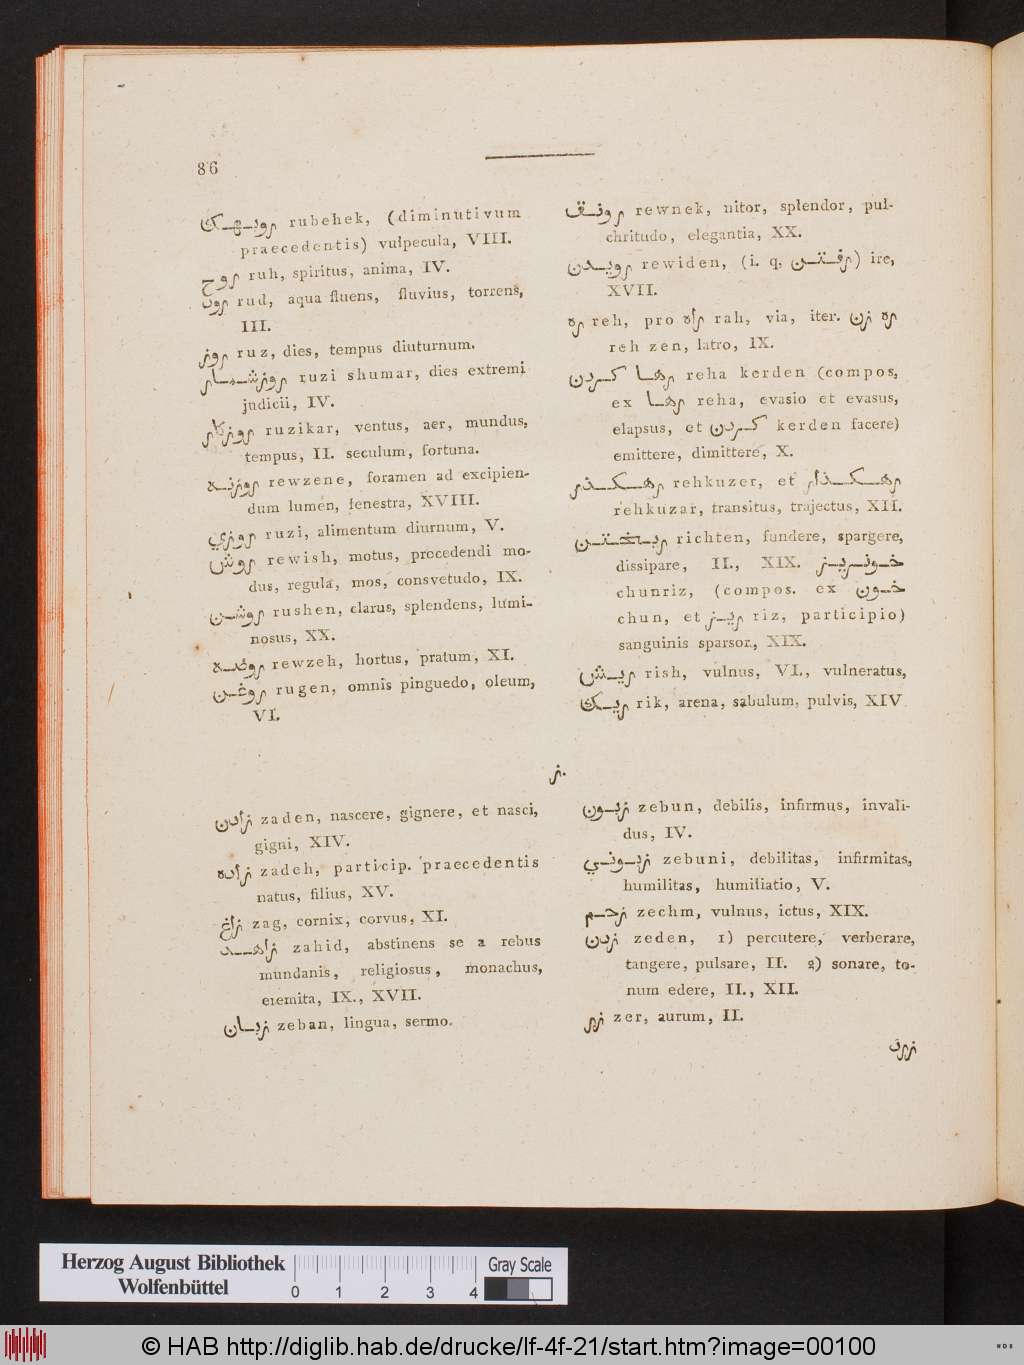 86
روبهك rubehek, (diminutivum
praecedentis) vulpecula, VIII.
روح ruh, spiritus, anima, IV.
رود rud, aqua fluens, fluvius, torrens,
III.
روز ruz, dies, tempus diuturnum.
روزشمار ruzi shumar, dies extremi
judicii, IV.
روزكار ruzikar, ventus, aer, mundus,
tempus, II. seculum, fortuna.
روزنه rewzene, foramen ad excipien-
dum lumen, fenestra, XVIII.
روزي ruzi, alimentum diurnum, V.
روش rewish, motus, procedendi mo-
dus, regula, mos, consvetudo, IX.
روشن rushen, clarus, splendens, lumi-
nosus, XX.
روضه rewzeh, hortus, pratum, XI.
روغن rugen, omnis pinguedo, oleum,
VI.
رونق rewnek, nitor, splendor, pul-
chritudo, elegantia, XX.
رويدن rewiden, (i. q. رفتن) ire,
XVII.
ره reh, pro راه rah, via, iter. ره زن
reh zen, latro, IX.
رها كردن reha kerden (compos.
ex رها reha, evasio et evasus,
elapsus, et كردن kerden facere)
emittere, dimittere, X.
رهكذر rehkuzer, et رهكذار
rehkuzar, transitus, trajectus, XII.
ريختن richten, fundere, spargere,
dissipare, II., XIX. خونريز
chunriz, (compos. ex خون
chun, et ريز riz, participio)
sanguinis sparsor, XIX.
ريش rish, vulnus, VI., vulneratus,
ريك rik, arena, sabulum, pulvis, XIV.
ز.
زادن zaden, nascere, gignere, et nasci,
gigni, XIV.
زاده zadeh, particip. praecedentis
natus, filius, XV.
زاغ zag, cornix, corvus, XI.
زاهد zahid, abstinens se a rebus
mundanis, religiosus, monachus,
eremita, IX., XVII.
زبان zeban, lingua, sermo.
زبون zebun, debilis, infirmus, invali-
dus, IV.
زبوني zebuni, debilitas, infirmitas,
humilitas, humiliatio, V.
زخم zechm, vulnus, ictus, XIX.
زدن zeden, 1) percutere, verberare,
tangere, pulsare, II. 2) sonare, to-
num edere, II., XII.
زر zer, aurum, II.
Herzog August Bibliothek
Wolfenbüttel
0 1 2 3 4
Gray Scale
© HAB http://diglib.hab.de/drucke/lf-4f-21/start.htm?image=00100